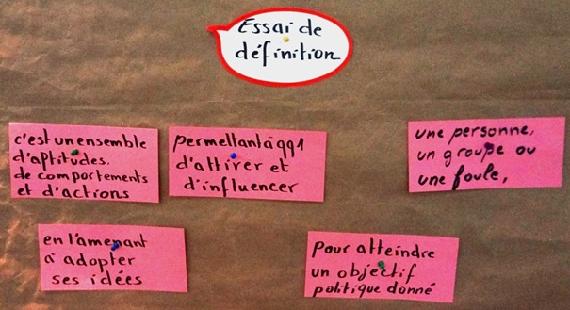 Essai de
définition
c'est un ensemble
d'aptitudes,
de comportements
et d'actions
permettant à qq1
d'attirer et
d'influencer
une personne,
un groupe ou
une foule,
en l'amenant
à adopter
ses idées
pour atteindre
un objectif
politique donné